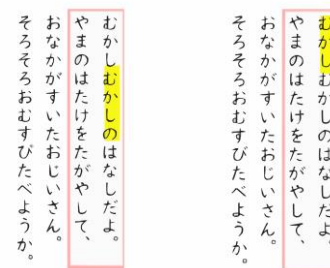 むかしむかしのはなしだよ。
やまのはたけをたがやして、
おなかがすいたおじいさん。
そろそろおむすびたべようか。
むかしむかしのはなしだよ。
やまのはたけをたがやして、
おなかがすいたおじいさん。
そろそろおむすびたべようか。